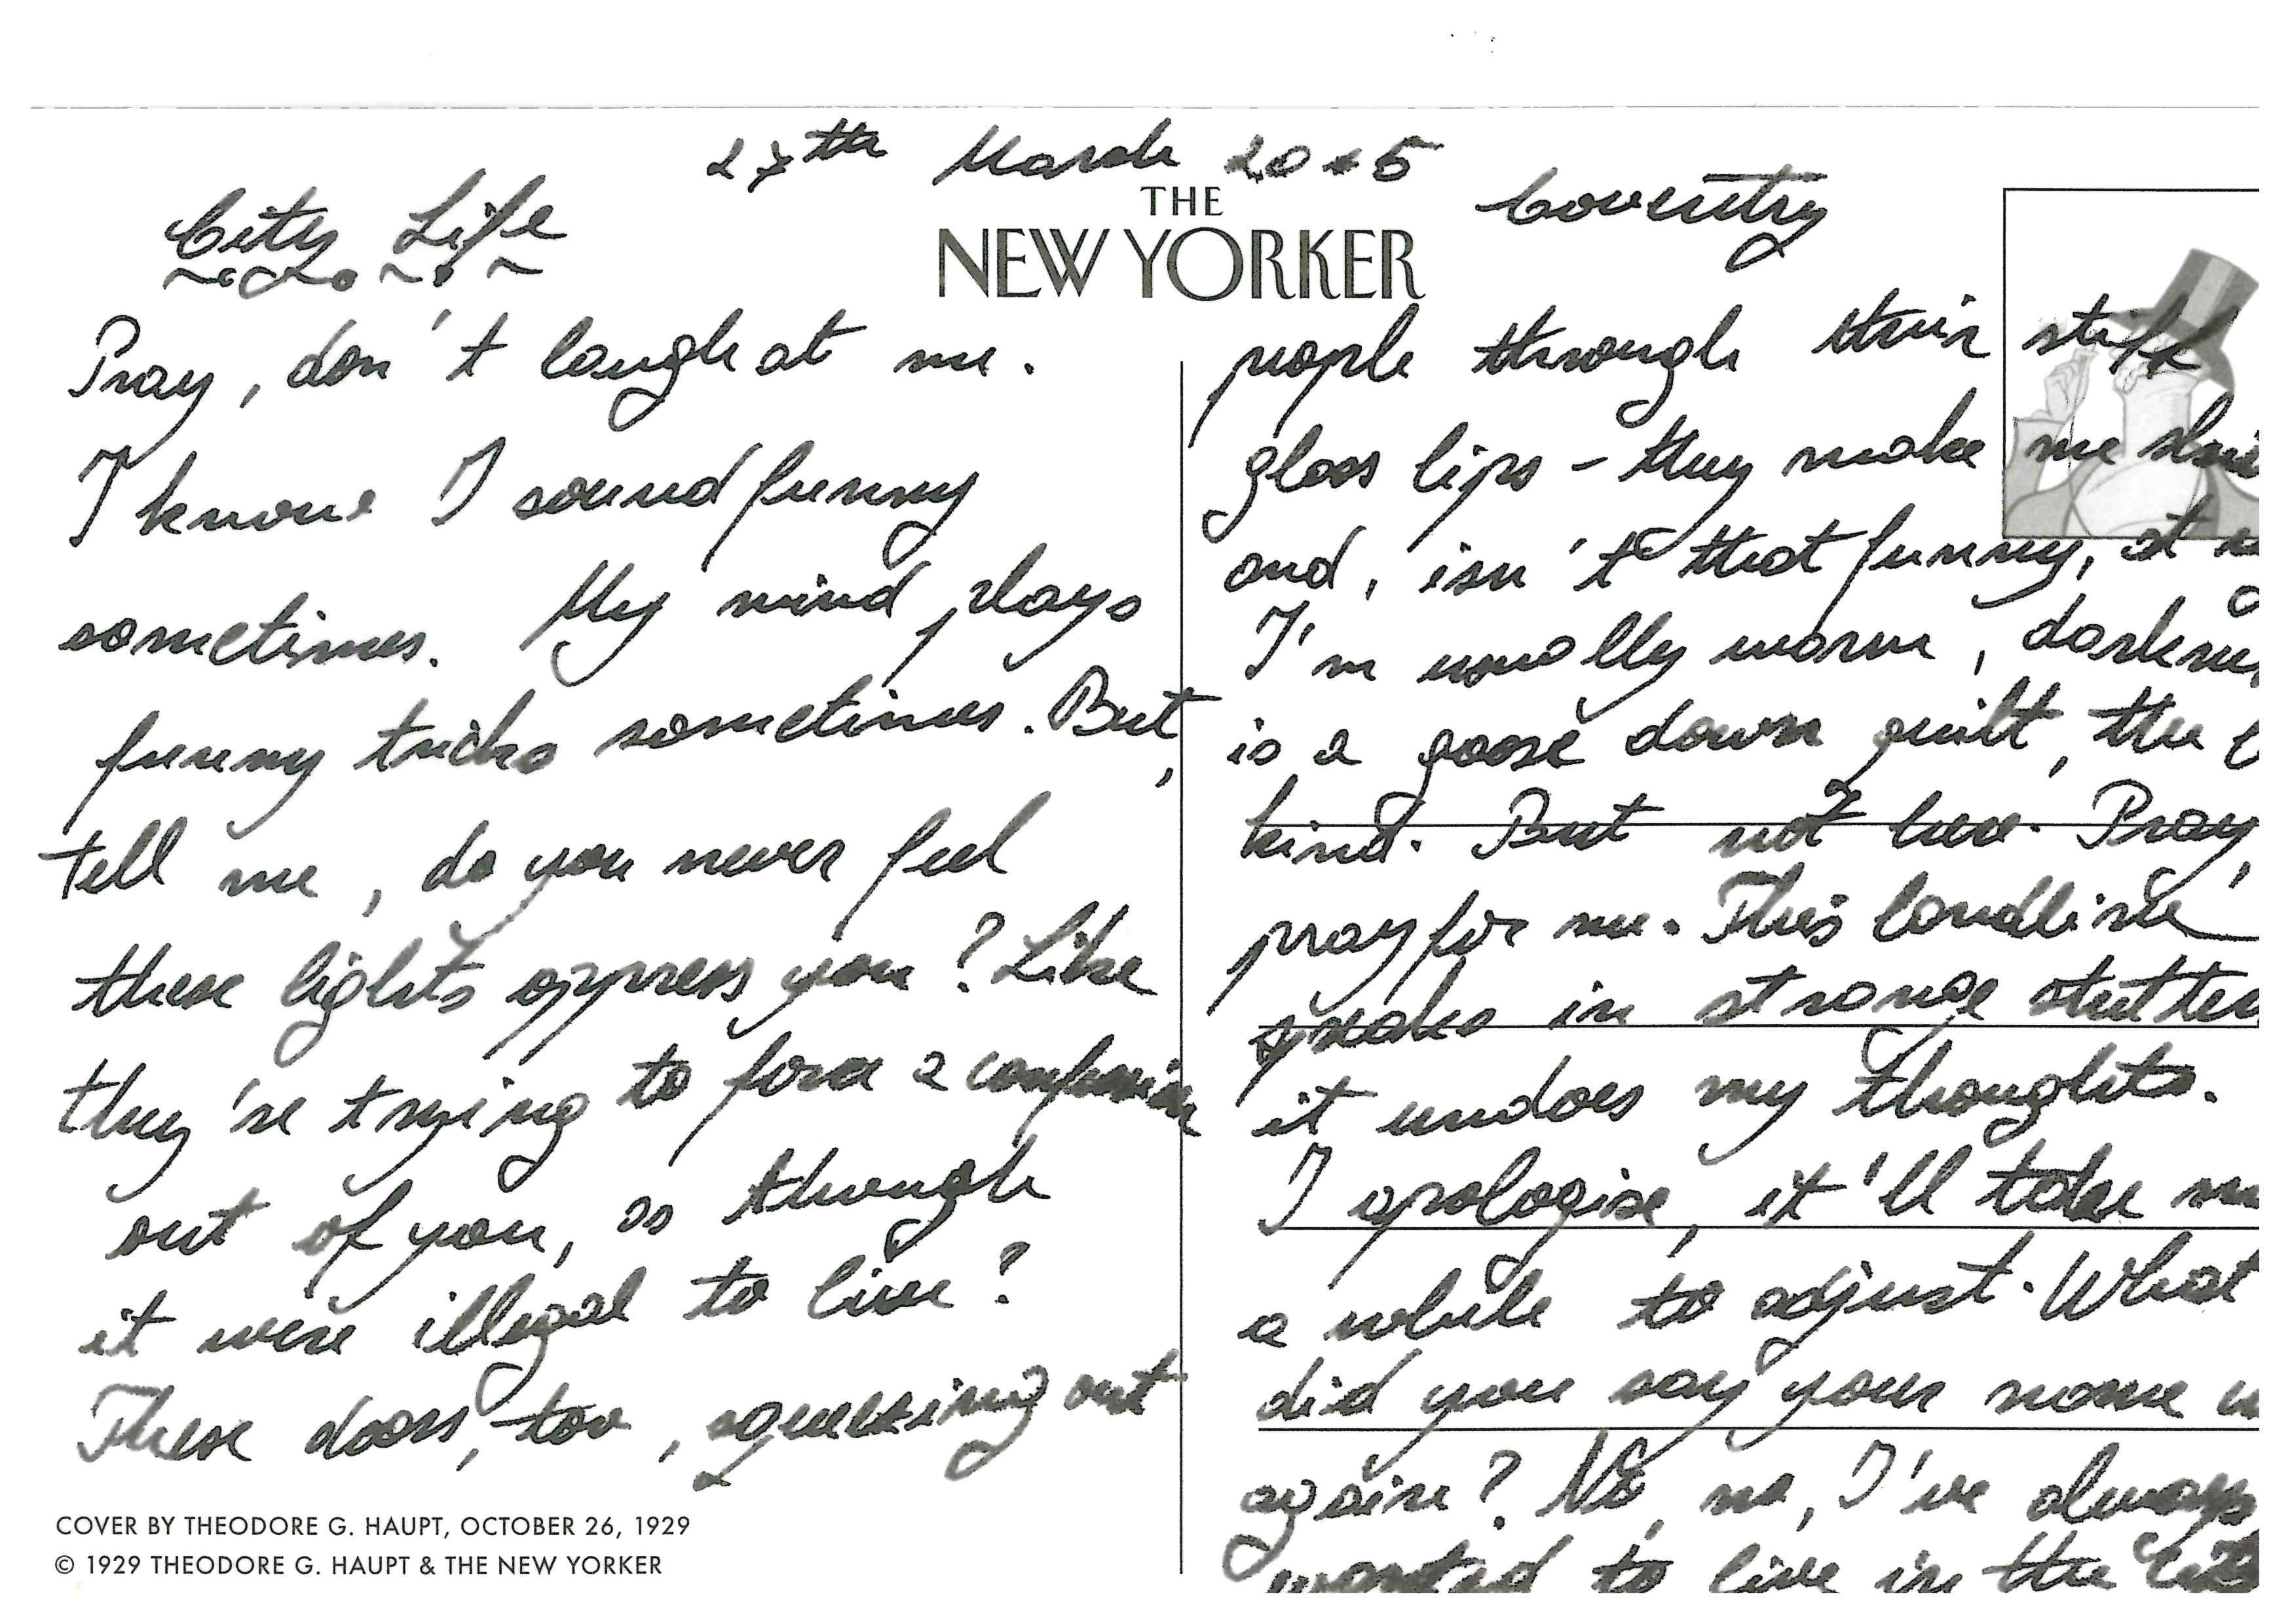 27th March 2015
Coventry
City Life
THE
NEW YORKER
Pray, don't laugh at me.
I know I sound funny
sometimes. My mind plays
funny tricks sometimes. But,
tell me, do you never feel
these lights oppress you? Like
they're trying to force a confession
out of you, as though
it were illegal to live?
These doors, too, squeezing out
people through their stiff
gloss lips - they make me
and, isn't that funny, at
I'm usually warm,
is a goose down quilt, the
kind. But not here. Pray,
pray for me. This landline
speaks in strange
it undoes my thoughts.
I apologise, it'll take
a while to adjust. What
did you say your name
again? No, no, I've always
wanted to live in the
COVER BY THEODORE G. HAUPT, OCTOBER 26, 1929
© 1929 THEODORE G. HAUPT & THE NEW YORKER